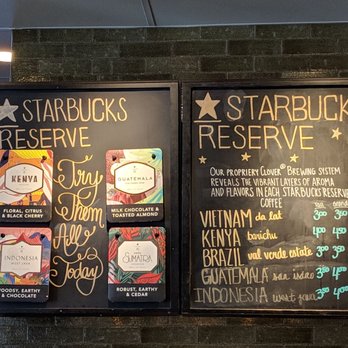 STARBUCKS
RESERVE
KENYA
FLORAL, CITRUS
& BLACK CHERRY
GUATEMALA
MILK CHOCOLATE &
TOASTED ALMOND
Try
Them
All
Today
INDONESIA
WEST JAVA
OODSY, EARTHY
& CHOCOLATE
SUMATRA
ROBUST, EARTHY
& CEDAR
STARBUCK
RESERVE
OUR PROPRIERY CLOVER® BREWING SYSTEM
REVEALS THE VIBRANT LAYERS OF AROMA
AND FLAVORS IN EACH STARBUCKS RESERVE
COFFEE
VIETNAM da lat
KENYA barichu
BRAZIL val verde estate
GUATEMALA san isidro
INDONESIA west java